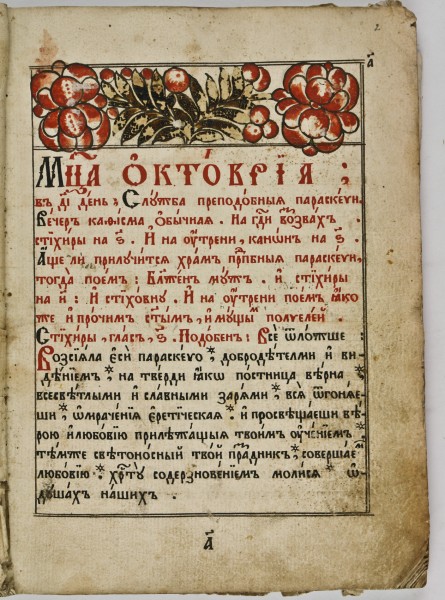 2
а҃
Мц҃а ѻ҆ктѡ́врїа ;
въ д҃і де́нь , Слꙋ́жба преподо́бныѧ параскеѵ́и .
Ве́черъ каѳи́сма ѻ҆бы́чнаѧ . На гдⷭ҇и воззва́хъ
стїхи́ры на ѕ҃ . И҆ на оу҆́трени , кано́нъ на ѕ҃ .
А҆́ще ли прилꙋчи́тсѧ хра́мъ прⷣпбныѧ параскеѵ́и ,
тогда̀ пое́мъ Бл҃же́нъ мꙋ́жъ . и҆ стїхи́ры
на и҃ : И҆ стїхо́внꙋ . И҆ на оу҆́трени пое́мъ ꙗ҆́ко
же и҆ про́чимъ ст҃ы́мъ , и҆мꙋ́щы полѷеле́и .
Стїхи́ры , гла́съ , ѕ҃ . Подо́бенъ : Всѐ ѿло́жше :
Возсїѧ́ла є҆сѝ параске́ѵо , добродѣ́телми и҆ ви-
дѣ́нїемъ * на тве́рди ꙗ҆́кѡ по́стница вѣ́рна *
всесвѣ́тлыми и҆ сла́вными зарѧ́ми * всѧ̀ ѿгонѧ́е-
ши * ѡ҆мраче́нїѧ є҆рети́ческаѧ * и҆ просвѣща́еши вѣ́-
рою и҆ любо́вїю прилѣжа́щыѧ твои́мъ оу҆че́нїемъ *
тѣ́мже свѣтоно́сный тво́й пра́здникъ * соверша́емъ
любо́вїю * хрⷭ҇тꙋ̀ содерзнове́нїемъ моли́сѧ * ѡ҆
дꙋша́хъ на́шихъ .
а҃